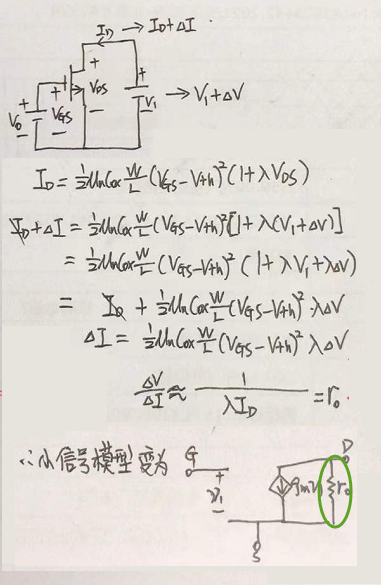 I_D → I_D+ΔI
V_0 + − V_GS + − V_DS + − V_1 → V_1+ΔV
I_D = ½ μnCox W/L (V_GS−V_th)² (1+λV_DS)
I_D+ΔI = ½ μnCox W/L (V_GS−V_th)² [1+λ(V_1+ΔV)]
= ½ μnCox W/L (V_GS−V_th)² (1+λV_1+λΔV)
= I_D + ½ μnCox W/L (V_GS−V_th)² λΔV
ΔI = ½ μnCox W/L (V_GS−V_th)² λΔV
ΔV/ΔI ≈ 1/(λI_D) = r_o
∴小信号模型变为 G + V_1 − g_mV_1 r_o D
S